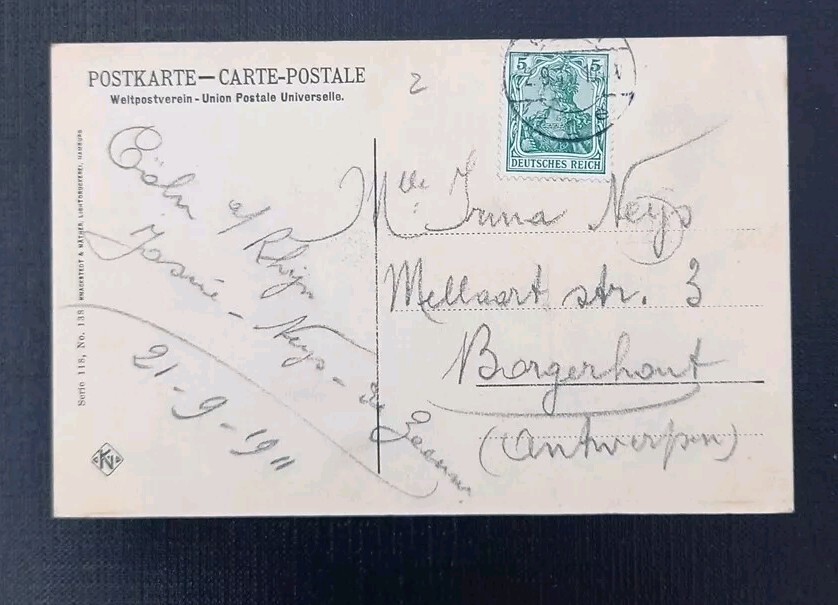 POSTKARTE — CARTE-POSTALE
Weltpostverein - Union Postale Universelle.
2
5 5
DEUTSCHES REICH
Serie 118, No. 138 KNACKSTEDT & NÄTHER, LICHTDRUCKEREI, HAMBURG
Cöln a/ Rhijn
Neys -
21-9-1911
Mlle Irma Neys
Mellaert str. 3
Borgerhout
(Antwerpen)